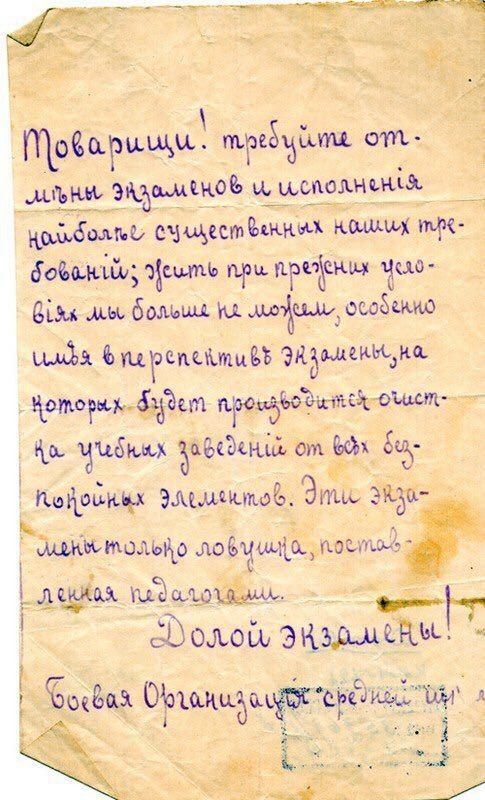 Товарищи! требуйте от-
мѣны экзаменовъ и исполненія
наиболѣе существенныхъ нашихъ тре-
бованій; жить при прежнихъ усло-
віяхъ мы больше не можем, особенно
имѣя в перспективѣ экзамены, на
которых будет производится очист-
ка учебных заведеній от всѣх без-
покойных элементов. Эти экза-
мены только ловушка, постав-
ленная педагогами.
Долой экзамены!
Боевая Организація средней